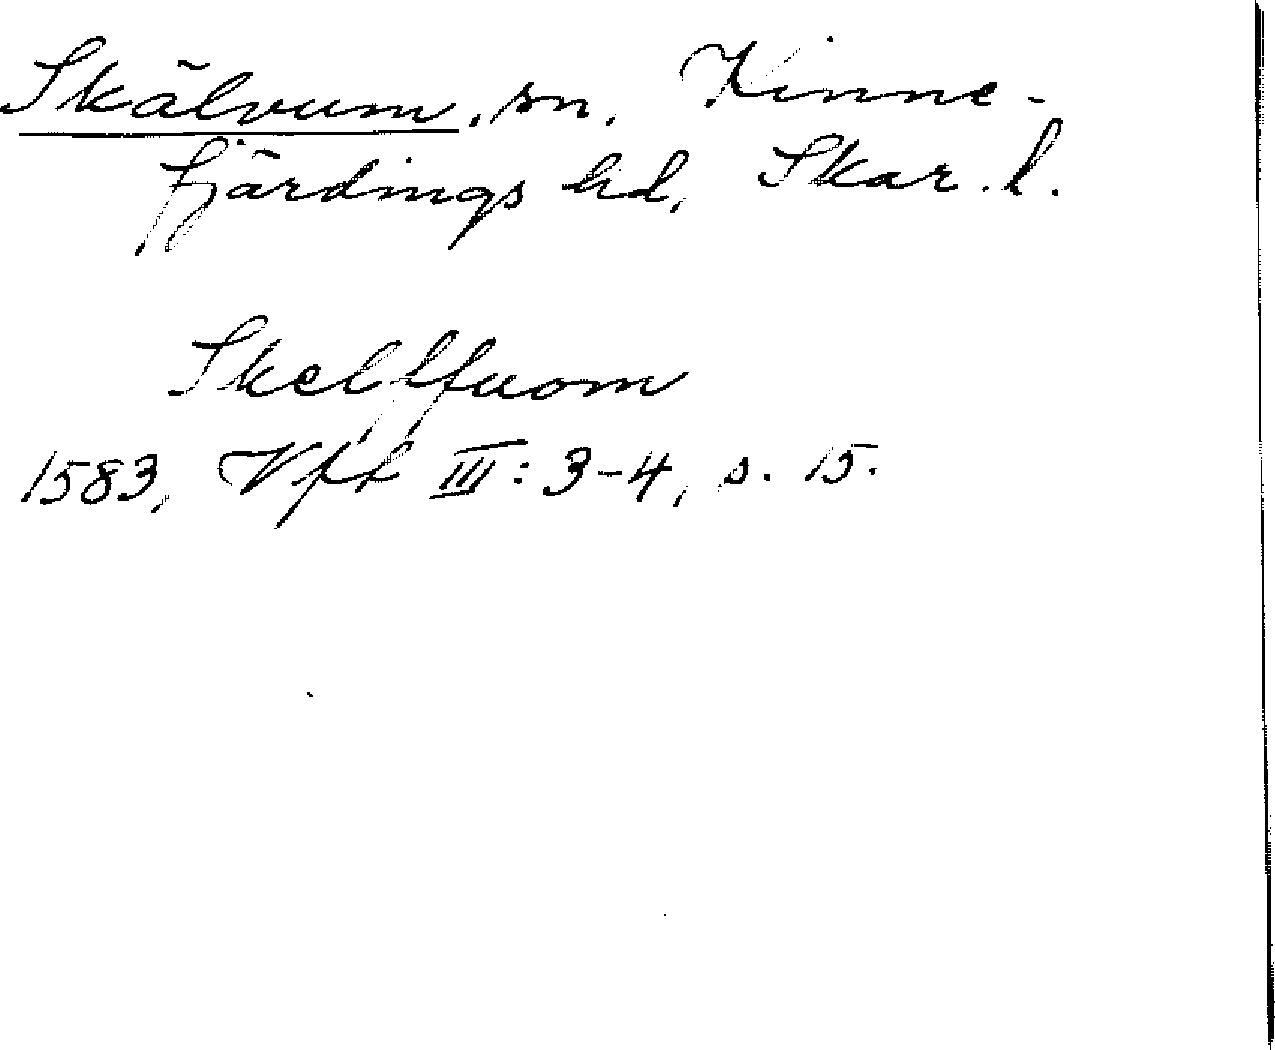 Skälvum, sn. Kinne-
fjärdings hd, Skar. l.
Skelffuom
1583, Vft III: 3-4, s. 15.